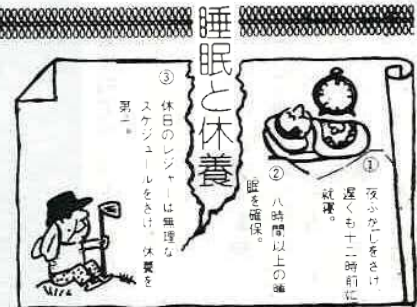 睡眠と休養
① 夜ふかしをさけ、
遅くも十二時前に
就寝。
② 八時間以上の睡
眠を確保。
③ 休日のレジャーは無理な
スケジュールをさけ、休養を
第一。